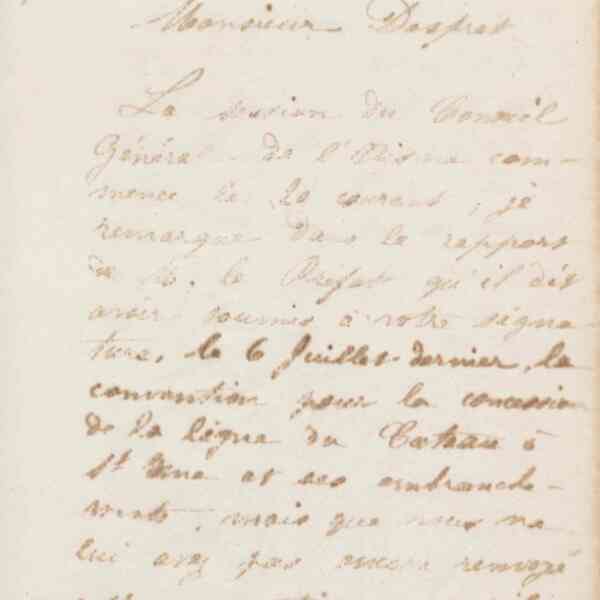 Monsieur Despret
La session du Conseil
Général de l'Aisne com-
mence le 20 courant, je
remarque dans le rapport
de M. le Préfet qu'il dit
avoir soumis à votre signa-
ture, le 6 Juillet dernier, la
convention pour la concession
de la ligne du Cateau à
St Erme et ses embranche-
ments, mais que vous ne
lui avez pas encore renvoyé